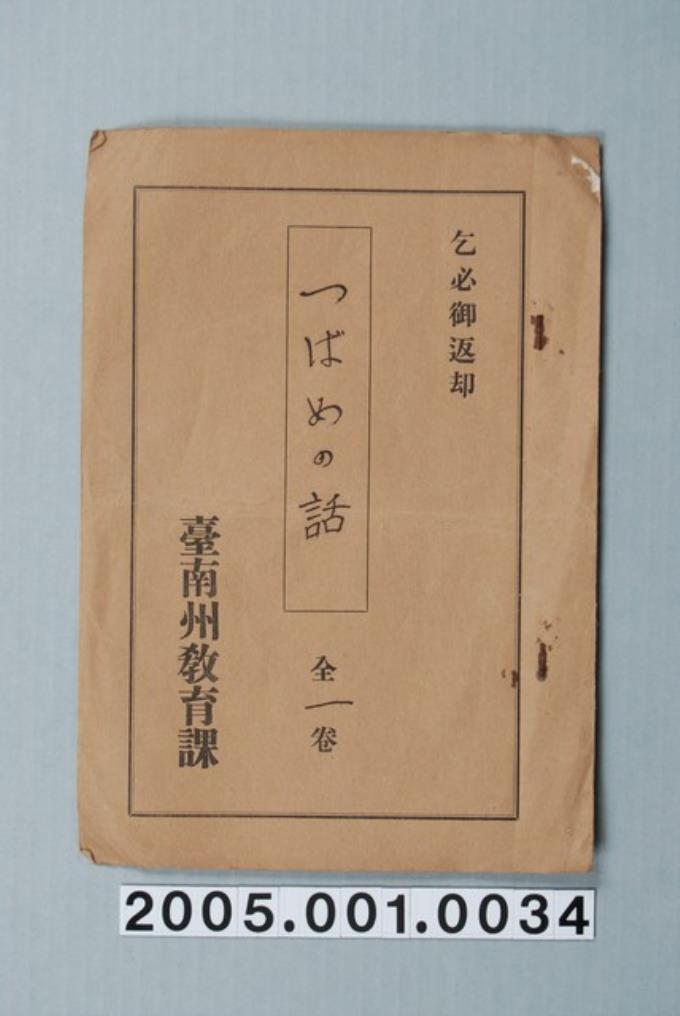 乞必御返却
つばめの話
全一卷
臺南州教育課
2005.001.0034